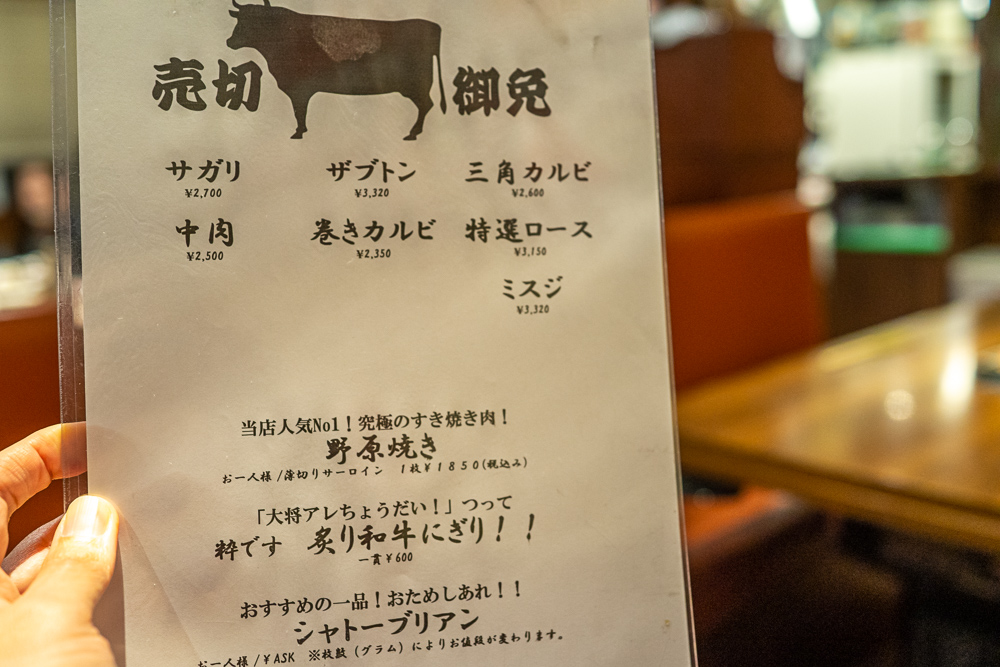 売切 御免
サガリ ザブトン 三角カルビ
¥2,700 ¥3,320 ¥2,600
中肉 巻きカルビ 特選ロース
¥2,500 ¥2,350 ¥3,150
ミスジ
¥3,320
当店人気No1！究極のすき焼き肉！
野原焼き
お一人様/薄切りサーロイン 1枚¥1850(税込み)
「大将アレちょうだい！」つって
粋です 炙り和牛にぎり！！
一貫¥600
おすすめの一品！おためしあれ！！
シャトーブリアン
お一人様/¥ASK ※枚数（グラム）によりお値段が変わります。